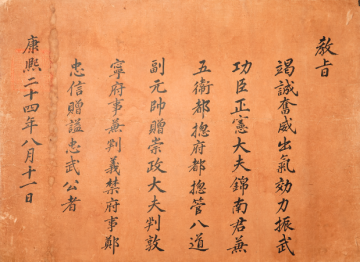 敎旨
竭誠奮威出氣効力振武
功臣正憲大夫錦南君兼
五衛都揔府都揔管八道
副元帥贈崇政大夫判敦
寧府事兼判義禁府事鄭
忠信贈諡忠武公者
康熙二十四年八月十一日